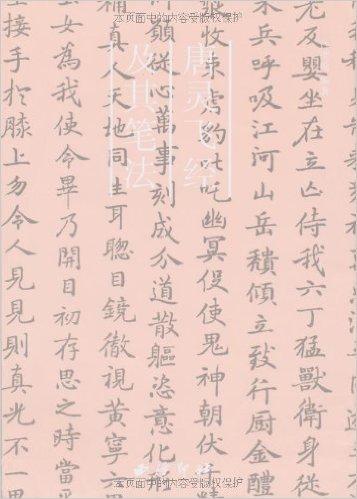 本页面中的内容受版权保护
唐灵飞经
及其笔法
老反嬰坐在立亡侍我六丁猛獸衛身從
朱兵呼吸江河山岳穨傾立致行厨金醴
收束虎豹叱吒幽冥役使鬼神朝伏精
願從心萬事刻成分道散軀恣意化形
補真人天地同生耳聦目鏡徹視黄寧六
女為我使令畢乃開目初存思之時當平
接手於膝上勿令人見見則真光不一思
西泠印社
本页面中的内容受版权保护